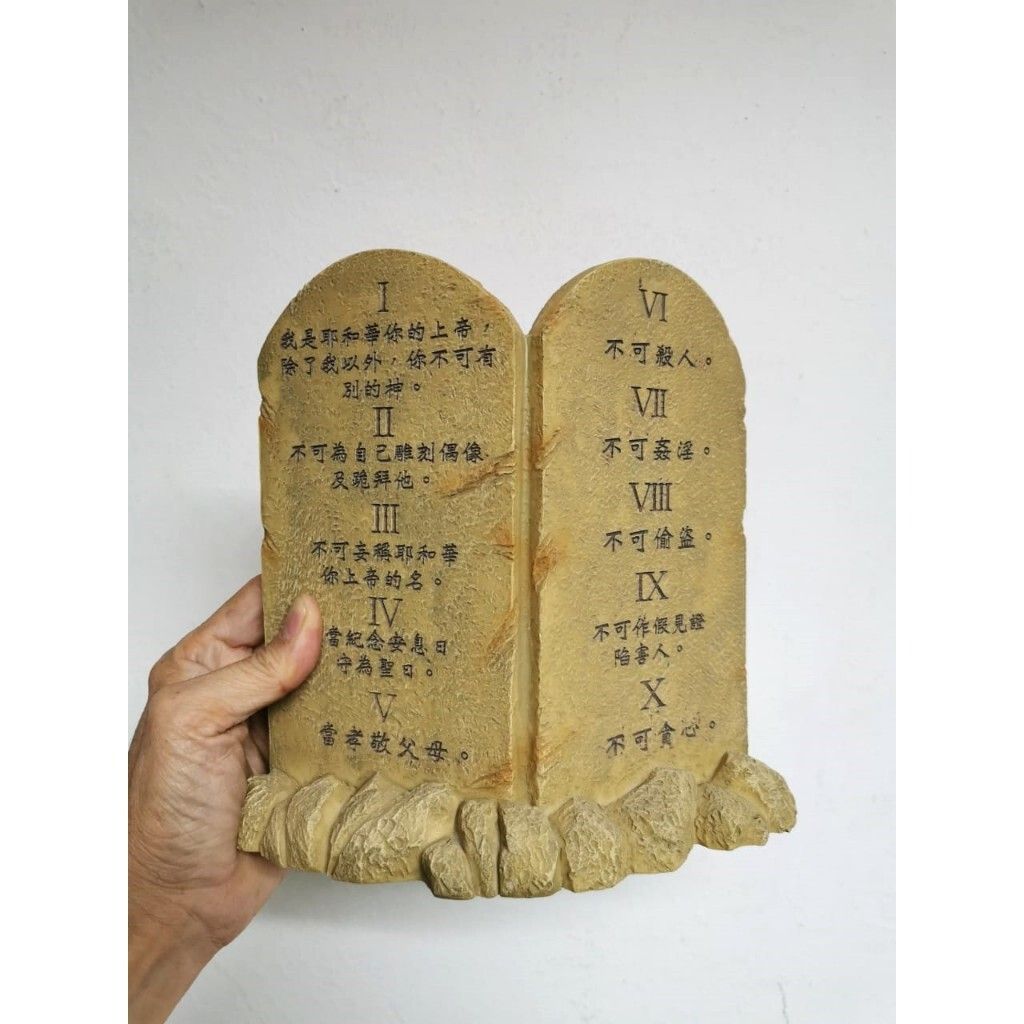 I
我是耶和華你的上帝，
除了我以外，你不可有
別的神。
II
不可為自己雕刻偶像
及跪拜他。
III
不可妄稱耶和華
你上帝的名。
IV
當紀念安息日
守為聖日。
V
當孝敬父母。
VI
不可殺人。
VII
不可姦淫。
VIII
不可偷盜。
IX
不可作假見證
陷害人。
X
不可貪心。